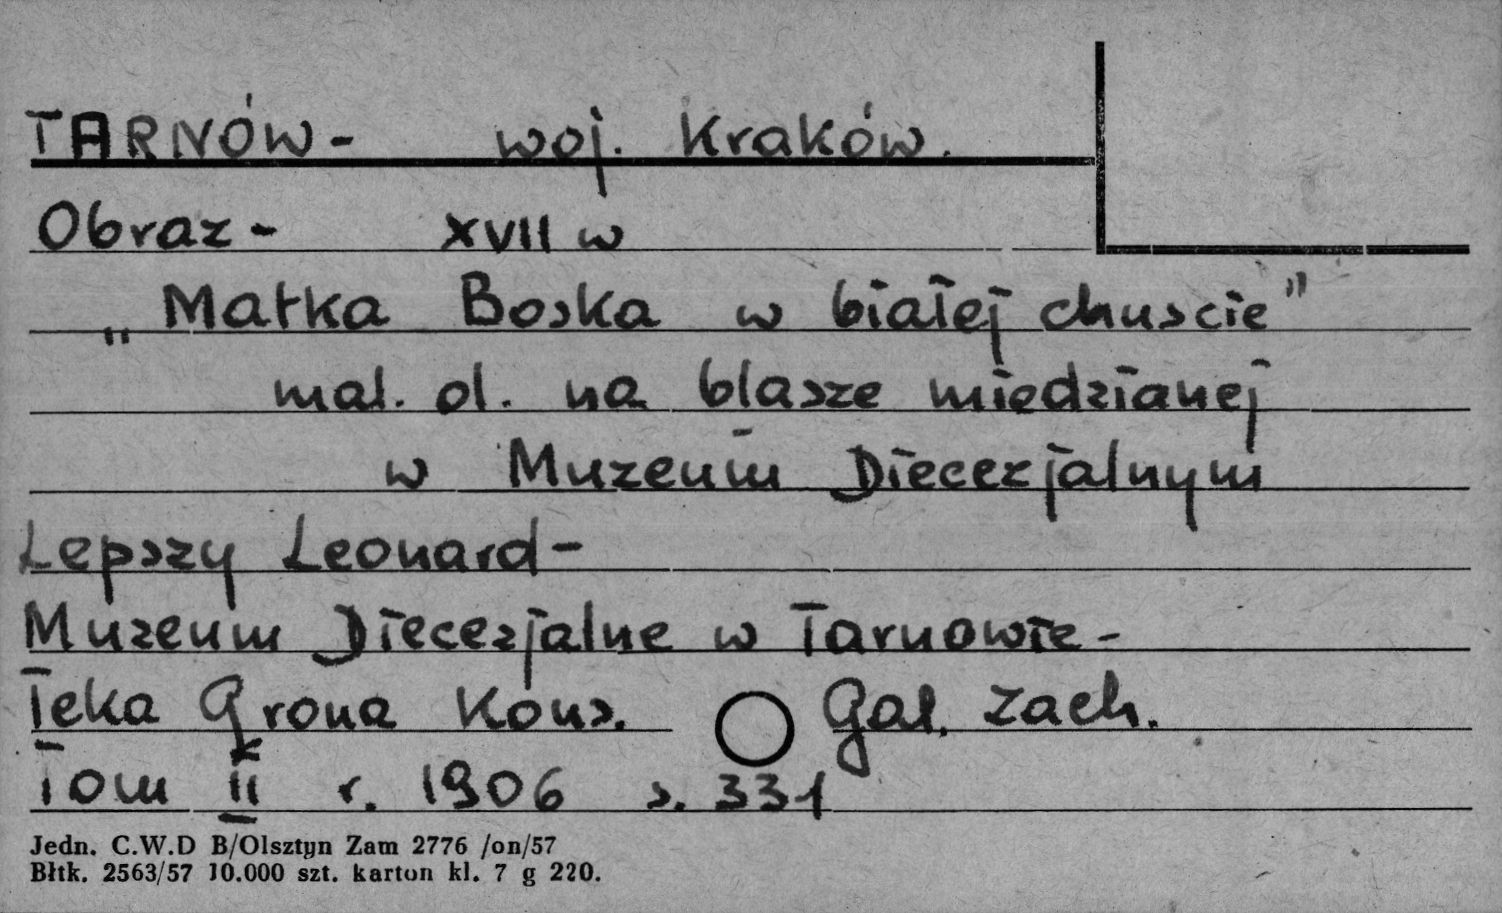 TARNÓW - woj. Kraków.
Obraz - XVII w
„Matka Boska w białej chuscie"
mal. ol. na blasze miedzianej
w Muzeum Diecezjalnym
Lepszy Leonard -
Muzeum Diecezjalne w Tarnowie -
Teka Grona Kons. Gal. Zach.
Tom II r. 1906 s. 331
Jedn. C.W.D B/Olsztyn Zam 2776 /on/57
Błtk. 2563/57 10.000 szt. karton kl. 7 g 220.